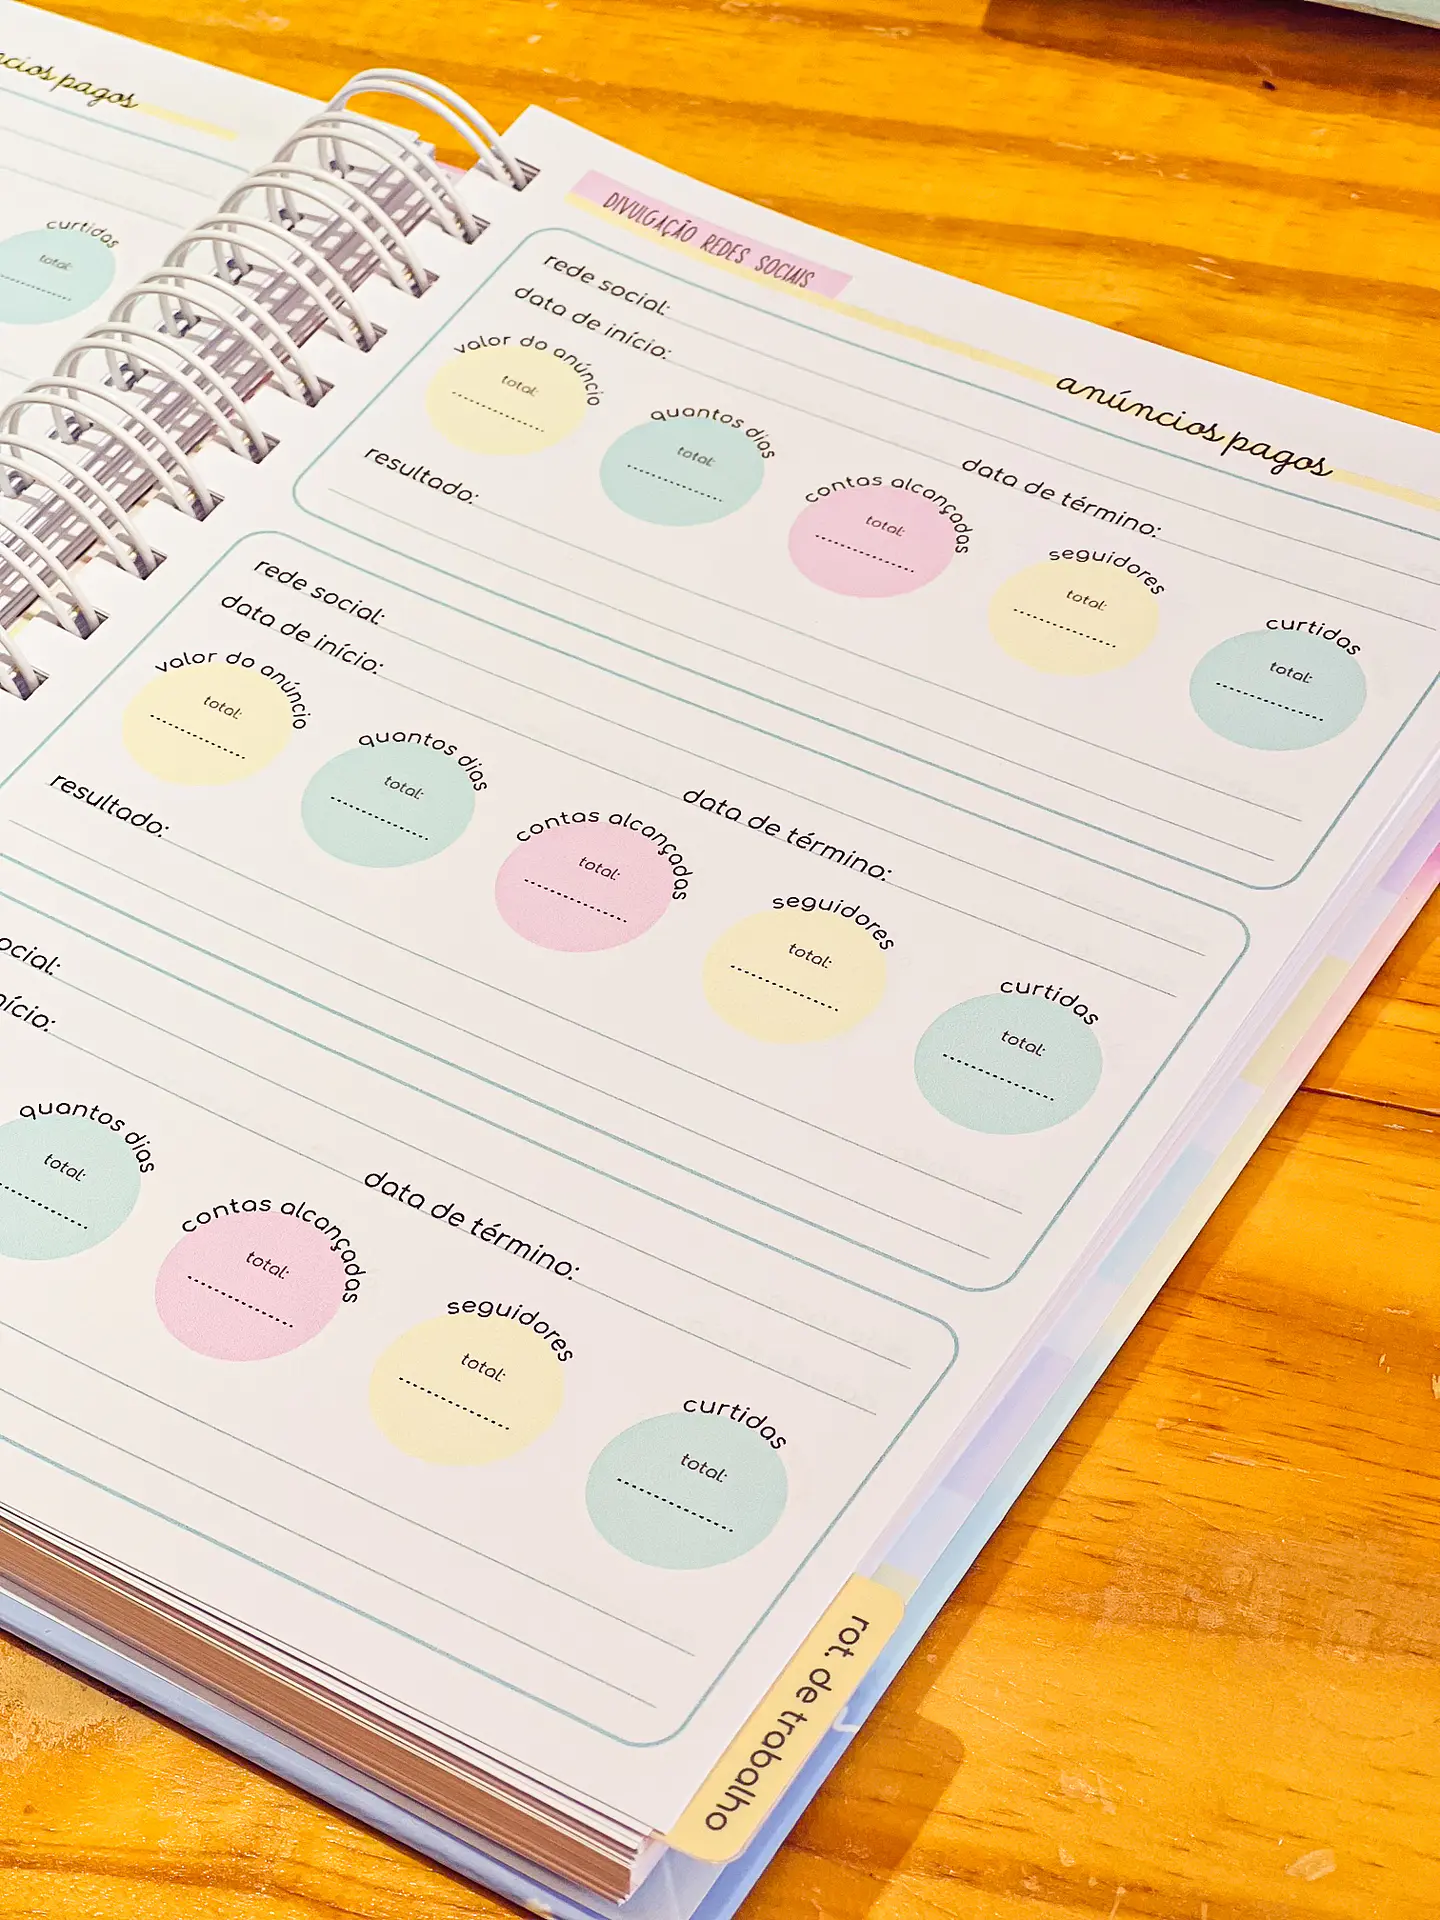 pagos
curtidas
total:
DIVULGAÇÃO REDES SOCIAIS
anúncios pagos
rede social:
data de início:
data de término:
valor do anúncio
total:
quantos dias
total:
contas alcançadas
total:
seguidores
total:
curtidas
total:
resultado:
rede social:
data de início:
data de término:
valor do anúncio
total:
quantos dias
total:
contas alcançadas
total:
seguidores
total:
curtidas
total:
resultado:
data de término:
quantos dias
total:
contas alcançadas
total:
seguidores
total:
curtidas
total:
rot. de trabalho